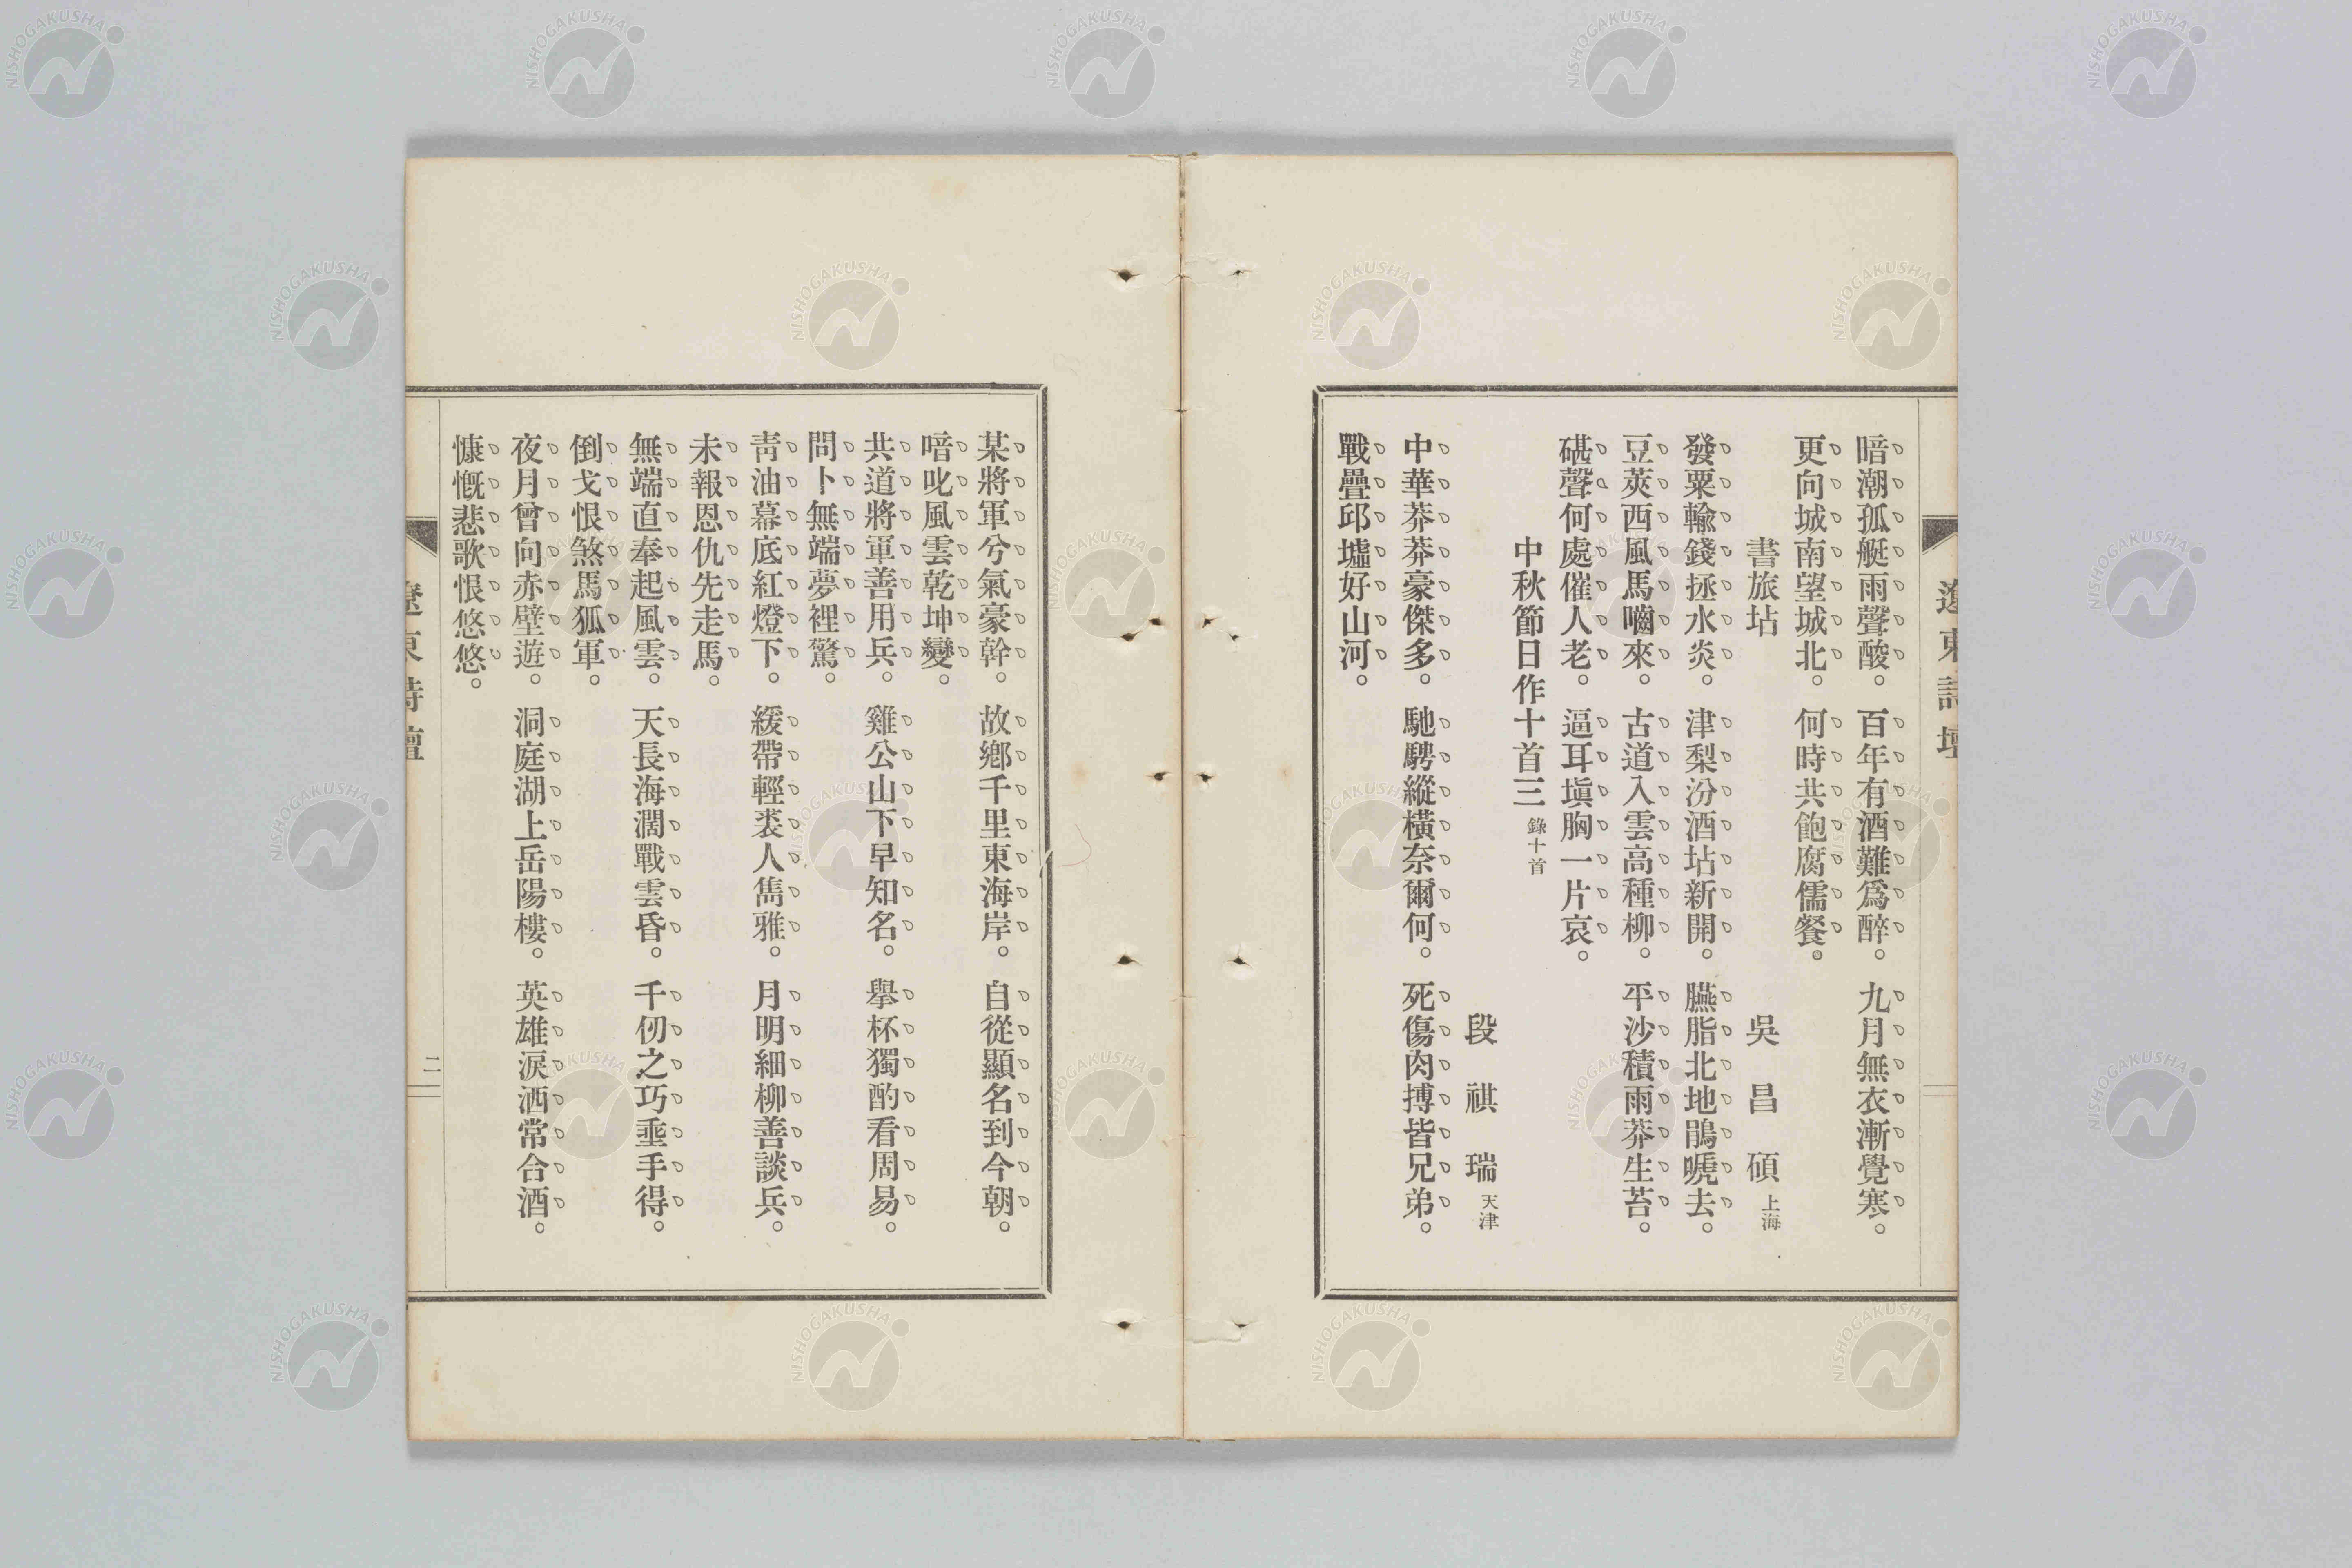 遼東詩壇
暗潮孤艇雨聲酸。百年有酒難爲醉。九月無衣漸覺寒。
更向城南望城北。何時共飽腐儒餐。
書旅坫 吳昌碩 上海
發粟輸錢拯水炎。津梨汾酒坫新開。臙脂北地鵑嗁去。
豆莢西風馬嚙來。古道入雲高種柳。平沙積雨莽生苔。
碪聲何處催人老。逼耳塡胸一片哀。
中秋節日作十首三 錄十首
段祺瑞 天津
中華莽莽豪傑多。馳騁縱橫奈爾何。死傷肉搏皆兄弟。
戰疊邱墟好山河。
某將軍兮氣豪幹。故鄕千里東海岸。自從顯名到今朝。
喑叱風雲乾坤變。
共道將軍善用兵。雞公山下早知名。擧杯獨酌看周易。
問卜無端夢裡驚。
靑油幕底紅燈下。緩帶輕裘人雋雅。月明細柳善談兵。
未報恩仇先走馬。
無端直奉起風雲。天長海濶戰雲昏。千仞之巧垂手得。
倒戈恨煞馮狐軍。
夜月曾向赤壁遊。洞庭湖上岳陽樓。英雄淚洒常合酒。
慷慨悲歌恨悠悠。
遼東詩壇
二
NISHOGAKUSHA